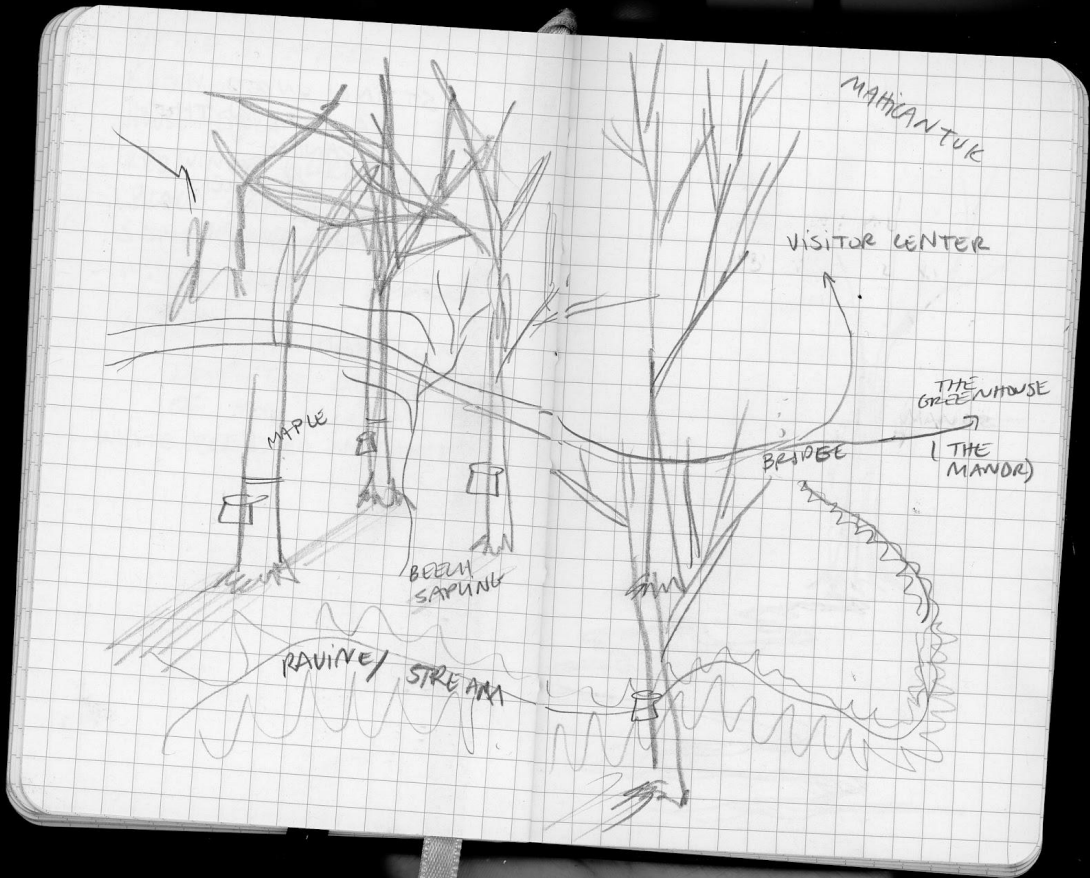 MAHICANTUK
VISITOR CENTER
THE
GREENHOUSE
(THE
MANOR)
BRIDGE
MAPLE
BEECH
SAPLING
RAVINE/ STREAM